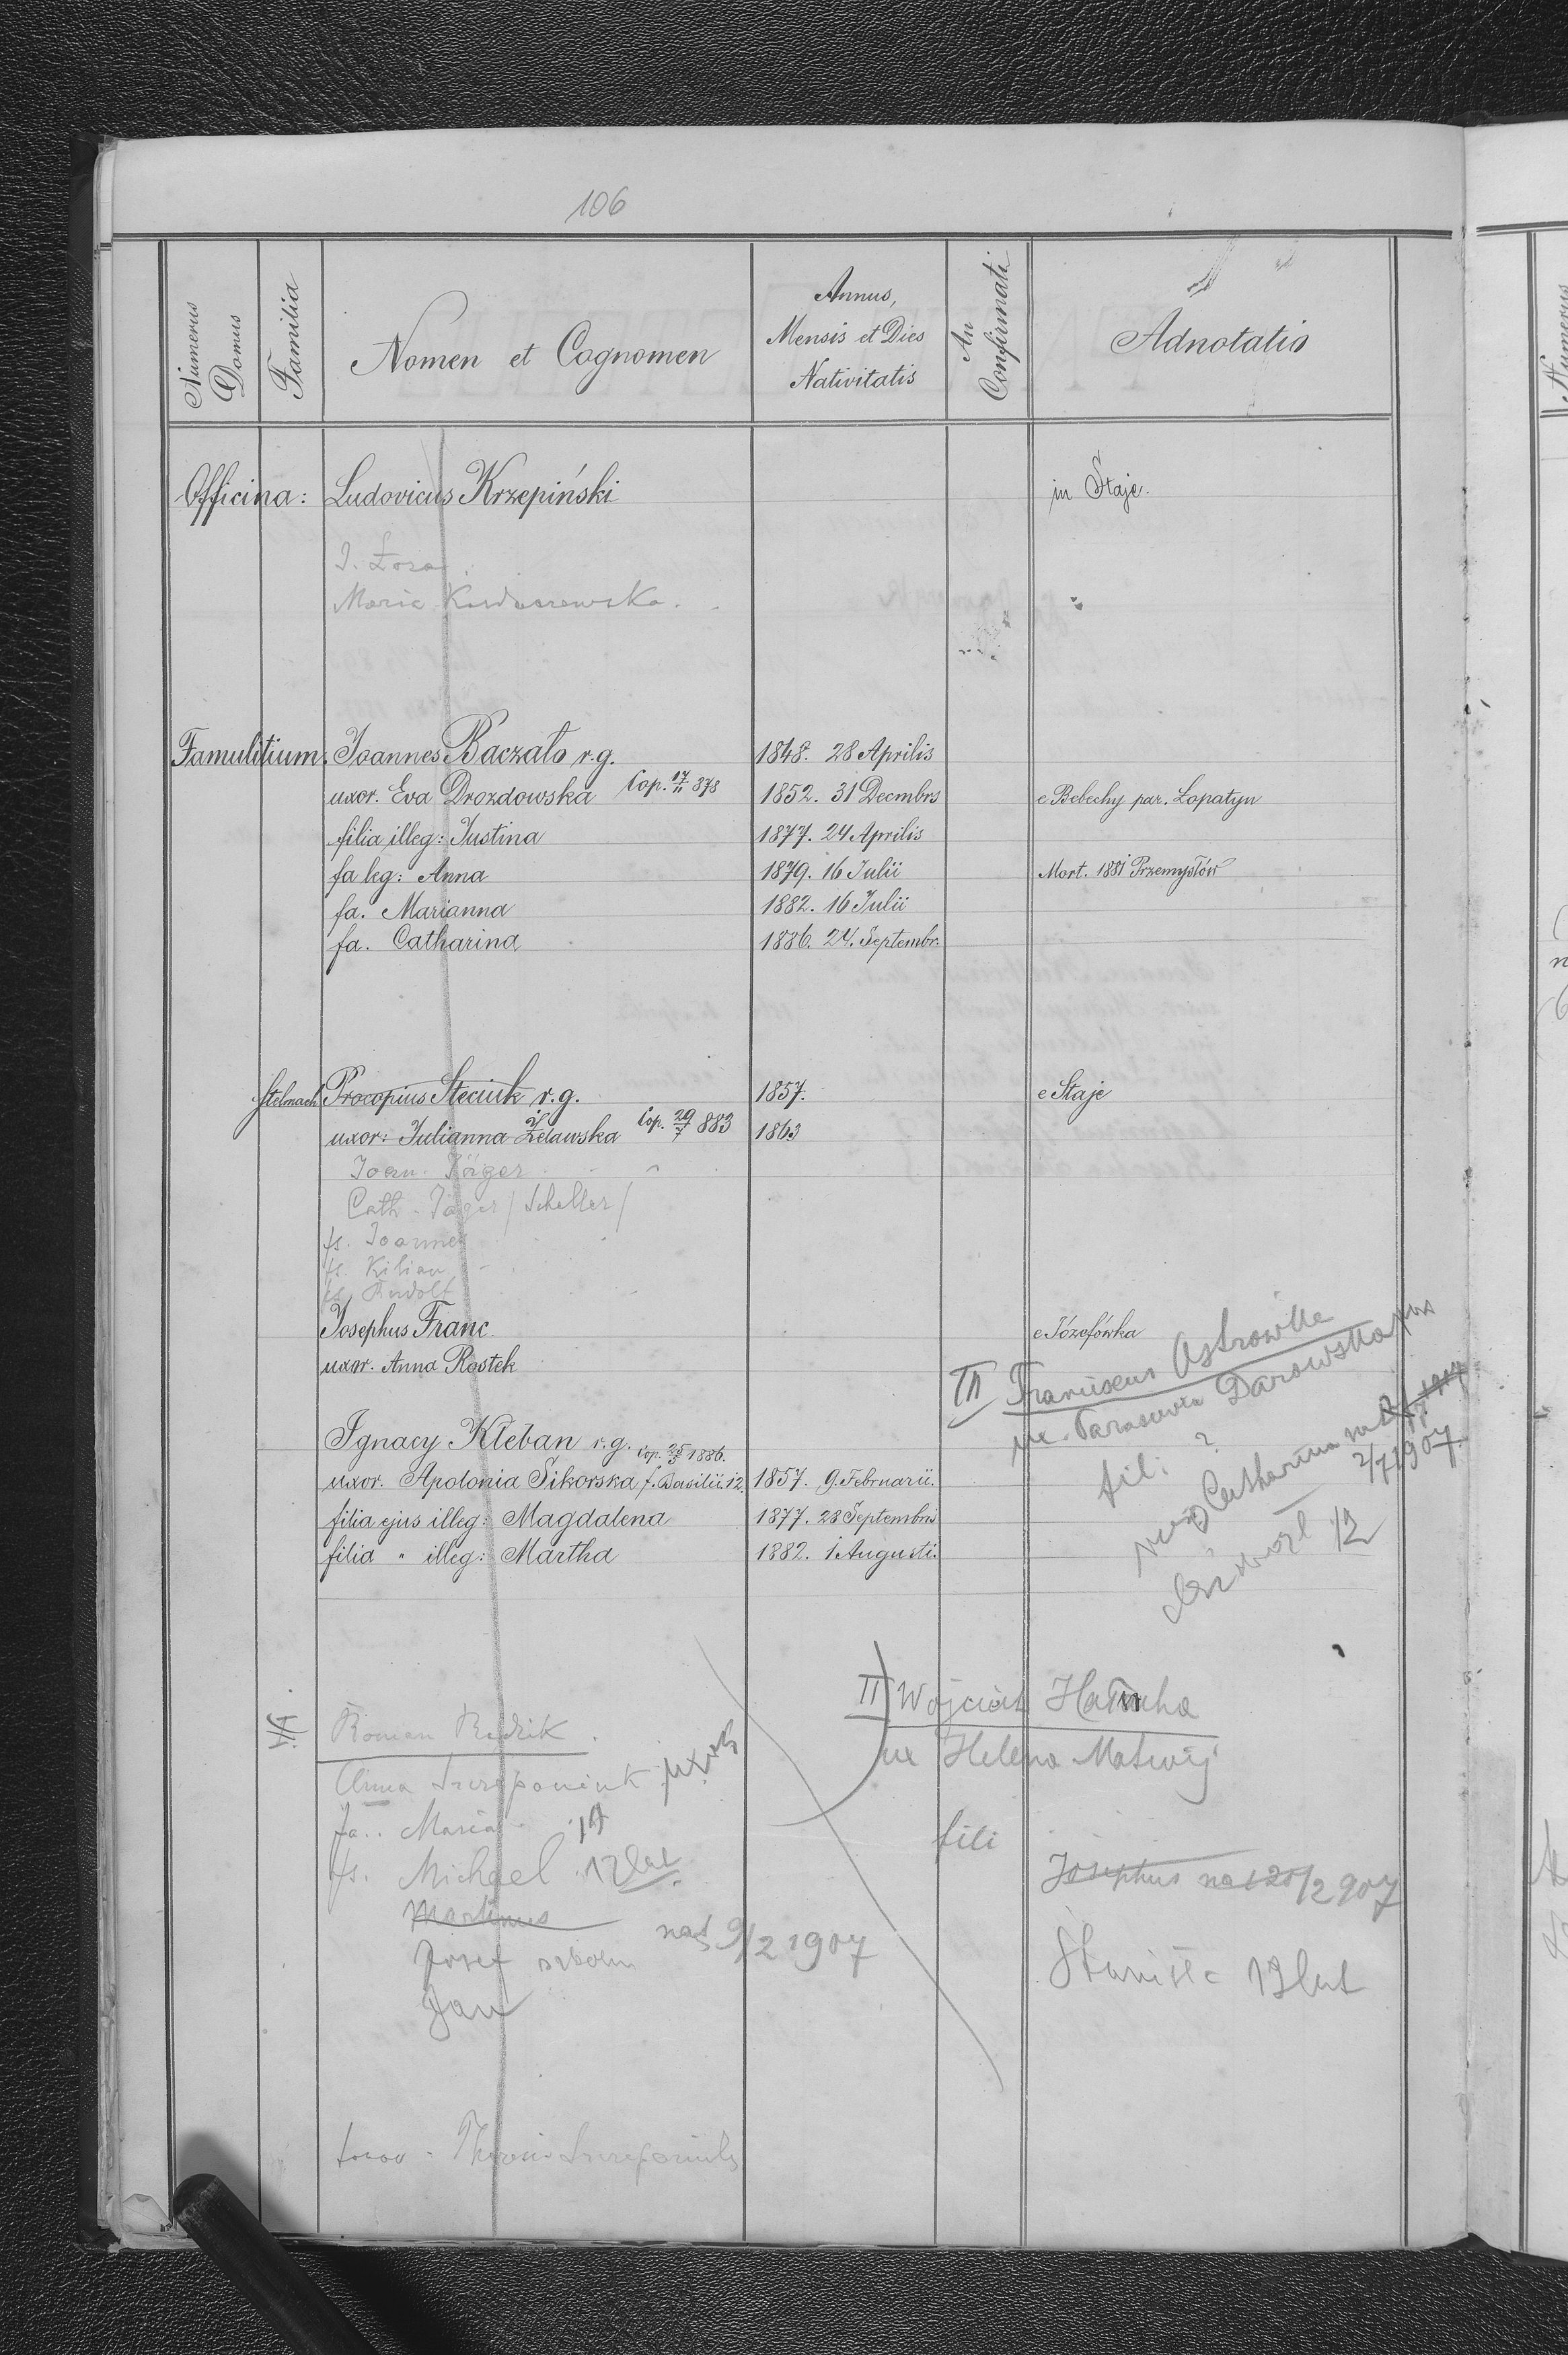 106
Numerus Domus
Familia
Nomen et Cognomen
Annus, Mensis et Dies Nativitatis
An Confirmati
Adnotatio
Officina: Ludovicus Krzepiński in Staje.
Maria
Famulitium. Joannes Baczało r.g. 1848. 28 Aprilis
uxor. Eva Drozdowska Cop. 17/11 878 1852. 31 Decmbrs e Bebechy par. Łopatyn
filia illeg: Justina 1877. 24 Aprilis
fa leg: Anna 1879. 16 Julii Mort. 1881 Przemysłów
fa. Marianna 1882. 16 Julii
fa. Catharina 1886. 24. Septembr.
Stelmach Procopius Steciuk r.g. 1857. e Staje
uxor: Julianna Żelawska Cop. 29/7 883 1863
Joan. Jäger
Cath. Jäger / Scheller /
fs. Joannes
fs. Kilian
fs. Rudolf
Josephus Franc. e Józefówka
uxor. Anna Rostek
III Franciscus Ostrowska
ux. Darowska
fil: ?
Catharina
2/7 1907
12
Ignacy Kleban r.g. Cop. 25/5 1886.
uxor. Apolonia Sikorska f. Basilii. 12. 1857. 9. Februarii.
filia ejus illeg: Magdalena 1877. 23 Septembris
filia " illeg: Martha 1882. 1 Augusti.
II Wojciech
ux Helena Matwij
fili
Josephus nat 20/2 907
12 lat
Roman
Anna Szczepaniuk uxor
fa. Maria 14
fs. Michael 12 lat
Martinus
Josef nat 9/2 1907
Jan
Szczepaniuk